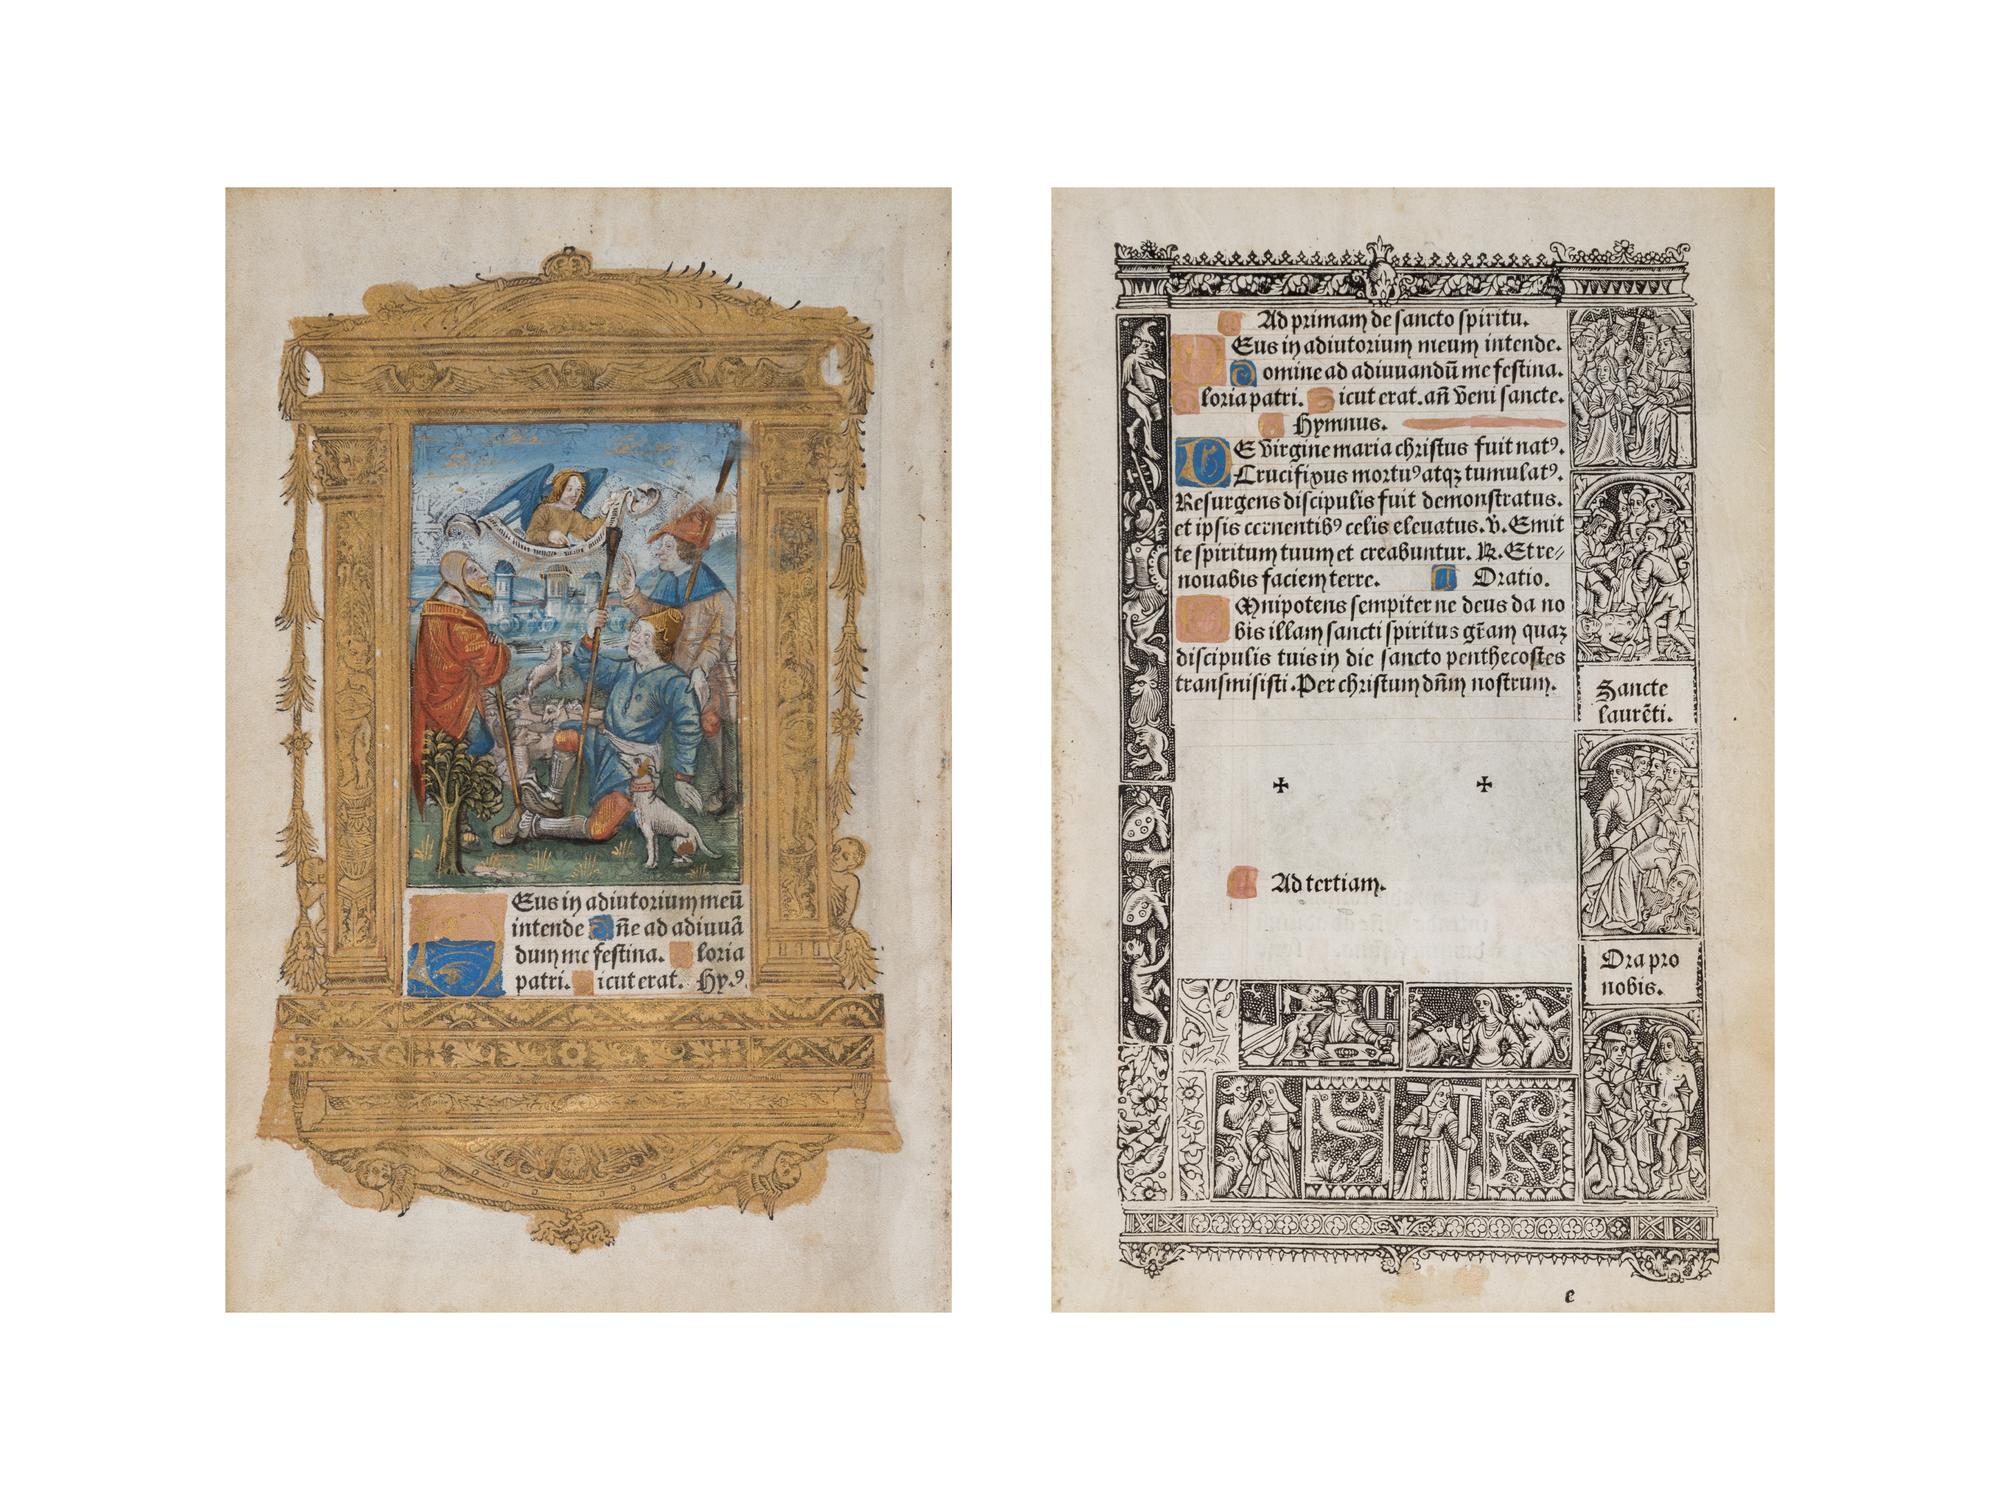 Eus in adiutorium meū
intende Dñe ad adiuuā
dum me festina. loria
patri. icut erat. Hyꝰ.
Ad primam de sancto spiritu.
Eus in adiutorium meum intende.
omine ad adiuuandū me festina.
loria patri. Sicut erat. añ Veni sancte.
Hymnus.
E virgine maria christus fuit natꝰ.
Crucifixus mortuꝰ atqꝫ tumulatꝰ.
Resurgens discipulis fuit demonstratus.
et ipsis cernentibꝰ celis eleuatus. v. Emit
te spiritum tuum et creabuntur. R. Et re⸗
nouabis faciem terre. Oratio.
Mnipotens sempiterne deus da no
bis illam sancti spiritus grām quaꝫ
discipulis tuis in die sancto penthecostes
transmisisti. Per christum dñm nostrum.
✠ ✠
Ad tertiam.
Sancte
laurēti.
Ora pro
nobis.
3
e